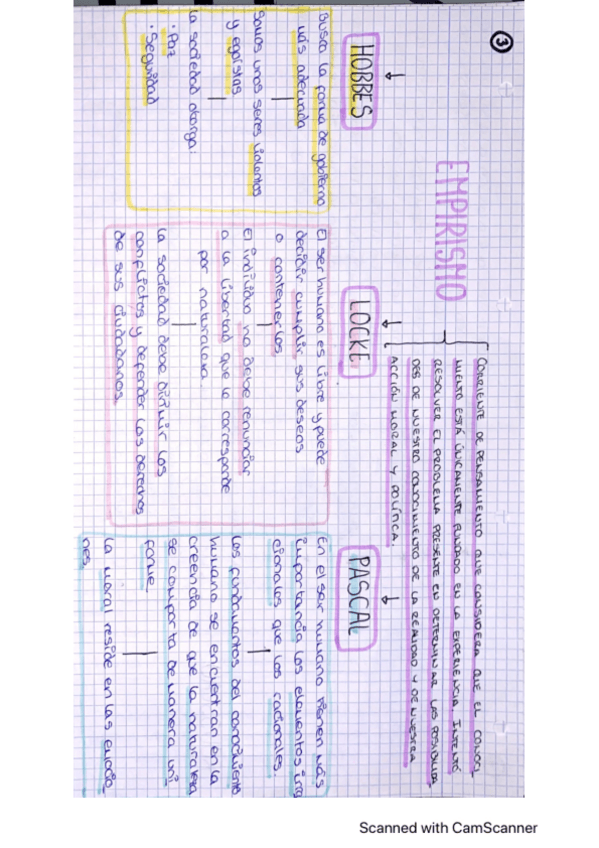 3
EMPIRISMO
CORRIENTE DE PENSAMIENTO QUE CONSIDERA QUE EL CONOCI
MIENTO ESTÁ ÚNICAMENTE FUNDADO EN LA EXPERIENCIA INTENTÓ
RESOLVER EL PROBLEMA PRESENTE EN DETERMINAR LAS POSIBILIDA
DES DE NUESTRO CONOCIMIENTO DE LA REALIDAD Y DE NUESTRA
ACCIÓN MORAL Y POLÍTICA.
HOBBES
Busca la forma de gobierno
más adecuada
Somos unos seres violentos
y egoístas
La sociedad otorga:
· Paz
· Seguridad
LOCKE
El ser humano es libre y puede
decidir cumplir sus deseos
o contenerlos
El individuo no debe renunciar
a la libertad que le corresponde
por naturaleza
La sociedad debe dirimir los
conflictos y defender los derechos
de sus ciudadanos.
PASCAL
En el ser humano tienen más
importancia los elementos irra
cionales que los racionales
Los fundamentos del conocimiento
humano se encuentran en la
creencia de que la naturaleza
se comporta de manera uni
forme.
La moral reside en las emocio
nes.
Scanned with CamScanner